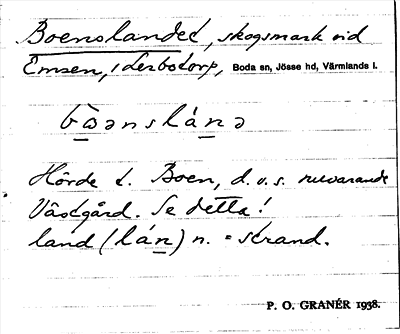 Boenslandet, skogsmark vid
Emsen, i Lerbotorp, Boda sn, Jösse hd, Värmlands l.
bωənslánə
Hörde t. Boen, d.v.s. nuvarande
Västgård. Se detta!
land (lán) n. = strand.
P. O. GRANÉR 1938.